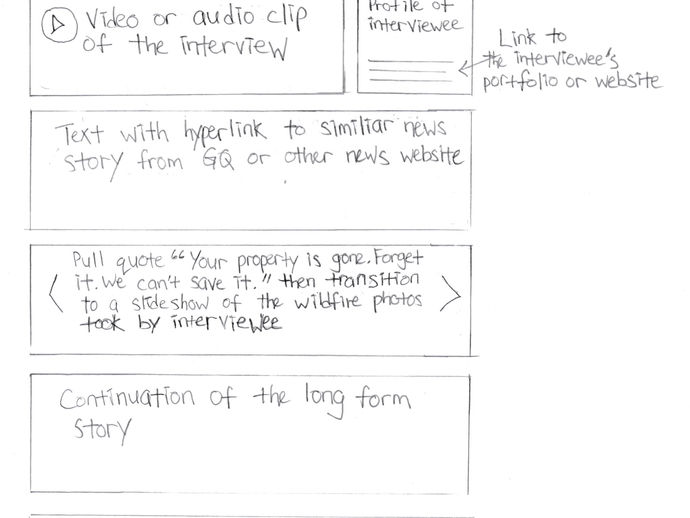 Video or audio clip
of the interview
Profile of
interviewee
Link to
the interviewee's
portfolio or website
Text with hyperlink to similiar news
story from GQ or other news website
Pull quote "Your property is gone. Forget
it. We can't save it." then transition
to a slideshow of the wildfire photos
took by interviewee
Continuation of the long form
story